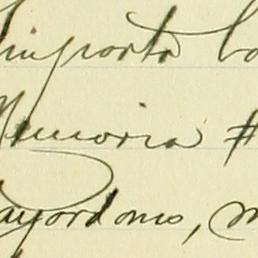 importo
Memoria #
ayordomo,